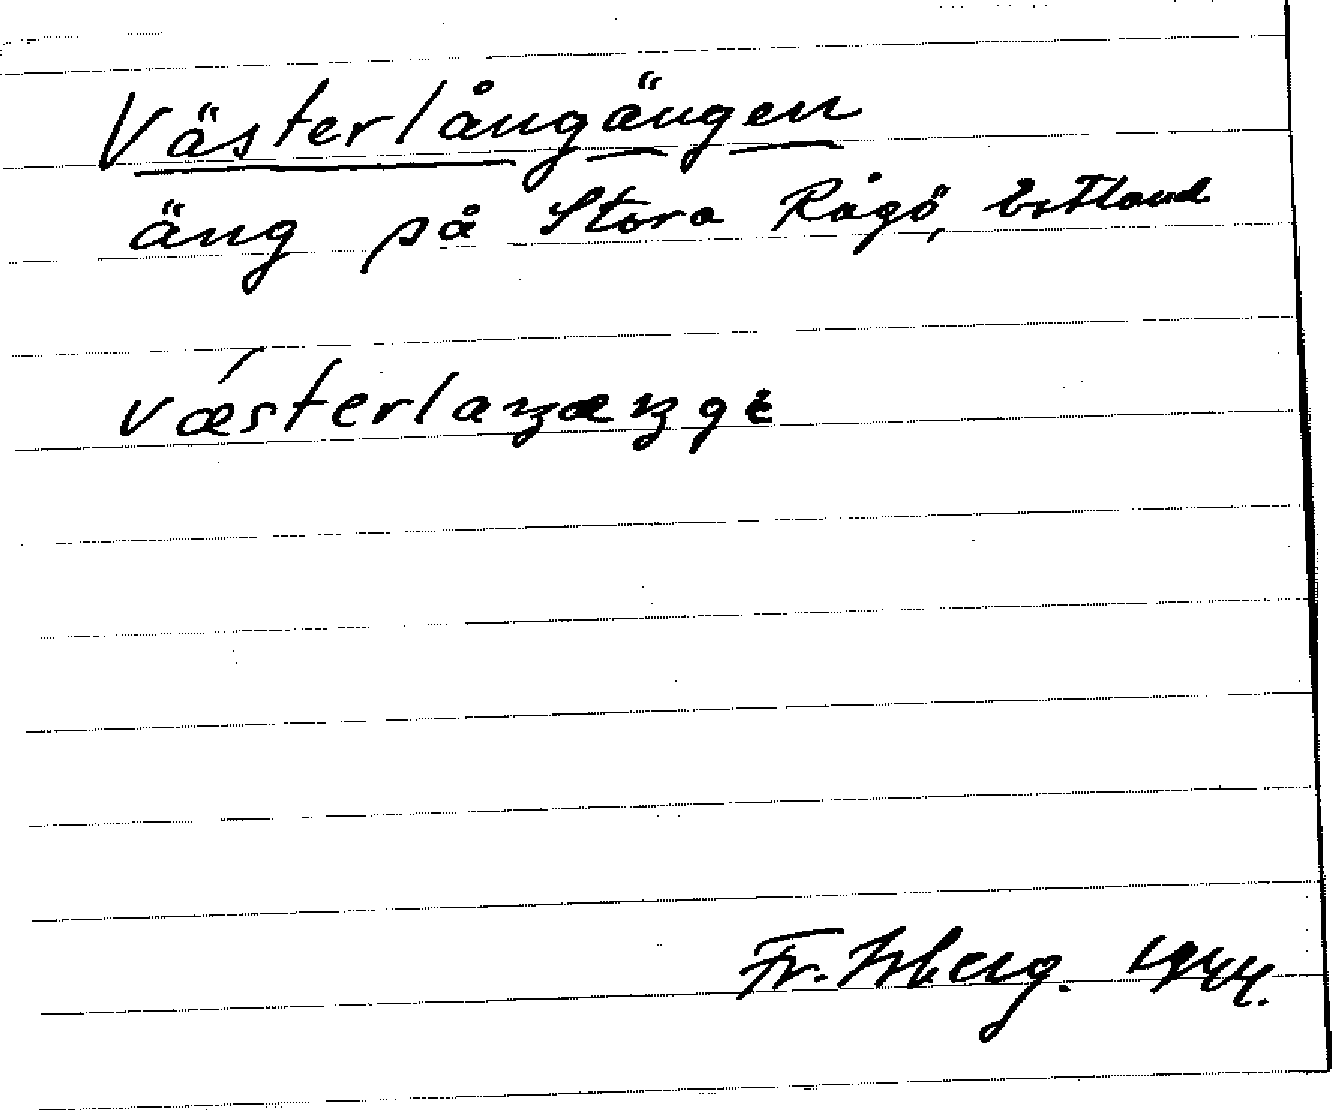 Västerlångängen
äng på Stora Rågö, Estland
vǽsterlaŋæŋgɛ
Fr. Isberg. 1944.